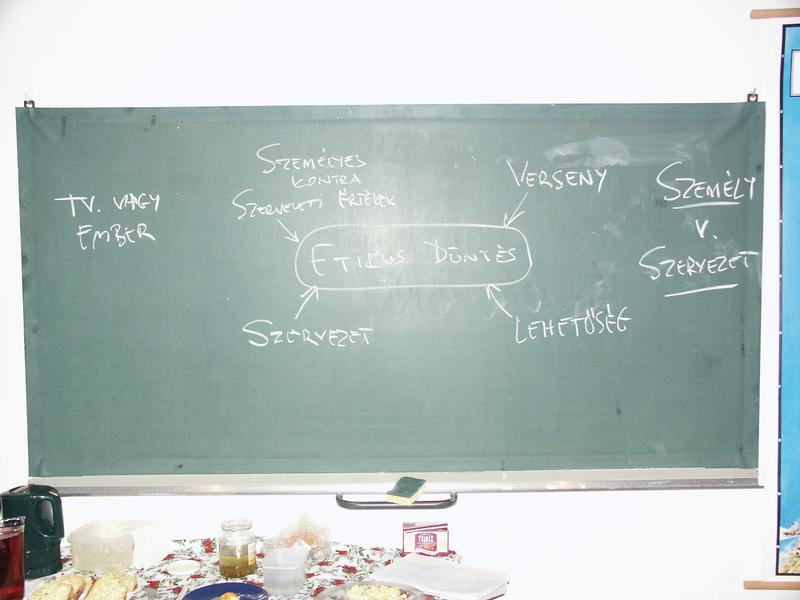 TV. VAGY
EMBER
SZEMÉLYES
KONTRA
SZERVEZETI ÉRTÉKEK
VERSENY
ETIKUS DÖNTÉS
SZERVEZET
LEHETŐSÉG
SZEMÉLY
V.
SZERVEZET